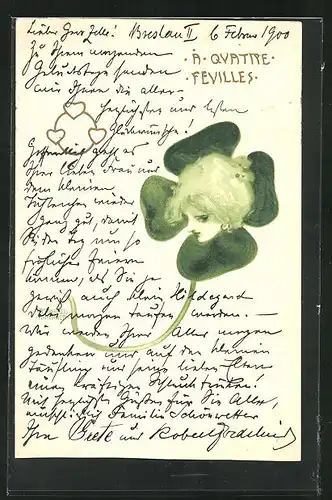 Lieber Herr Zelle! Breslau II 6 Febr 1900
A · QVATRE ·
FEVILLES ·
Zu Ihrem morgenden
Geburtstage senden
wir Ihnen die aller-
herzlichsten und besten
Glückwünsche!
Hoffentlich geht es
Ihrer lieben Frau und
dem kleinen
wieder
ganz gut, damit
Sie den Tag um so
fröhlicher feiern
können, als Sie ja
gewiß auch klein Hildegard
dabei morgen taufen werden. —
Wir werden Ihrer Aller morgen
gedenken und auf den kleinen
Täufling und seine lieben Eltern
einen kräftigen Schluck trinken!
Mit herzlichsten Grüßen für Sie Alle,
einschließlich Familie
Ihre und Robert